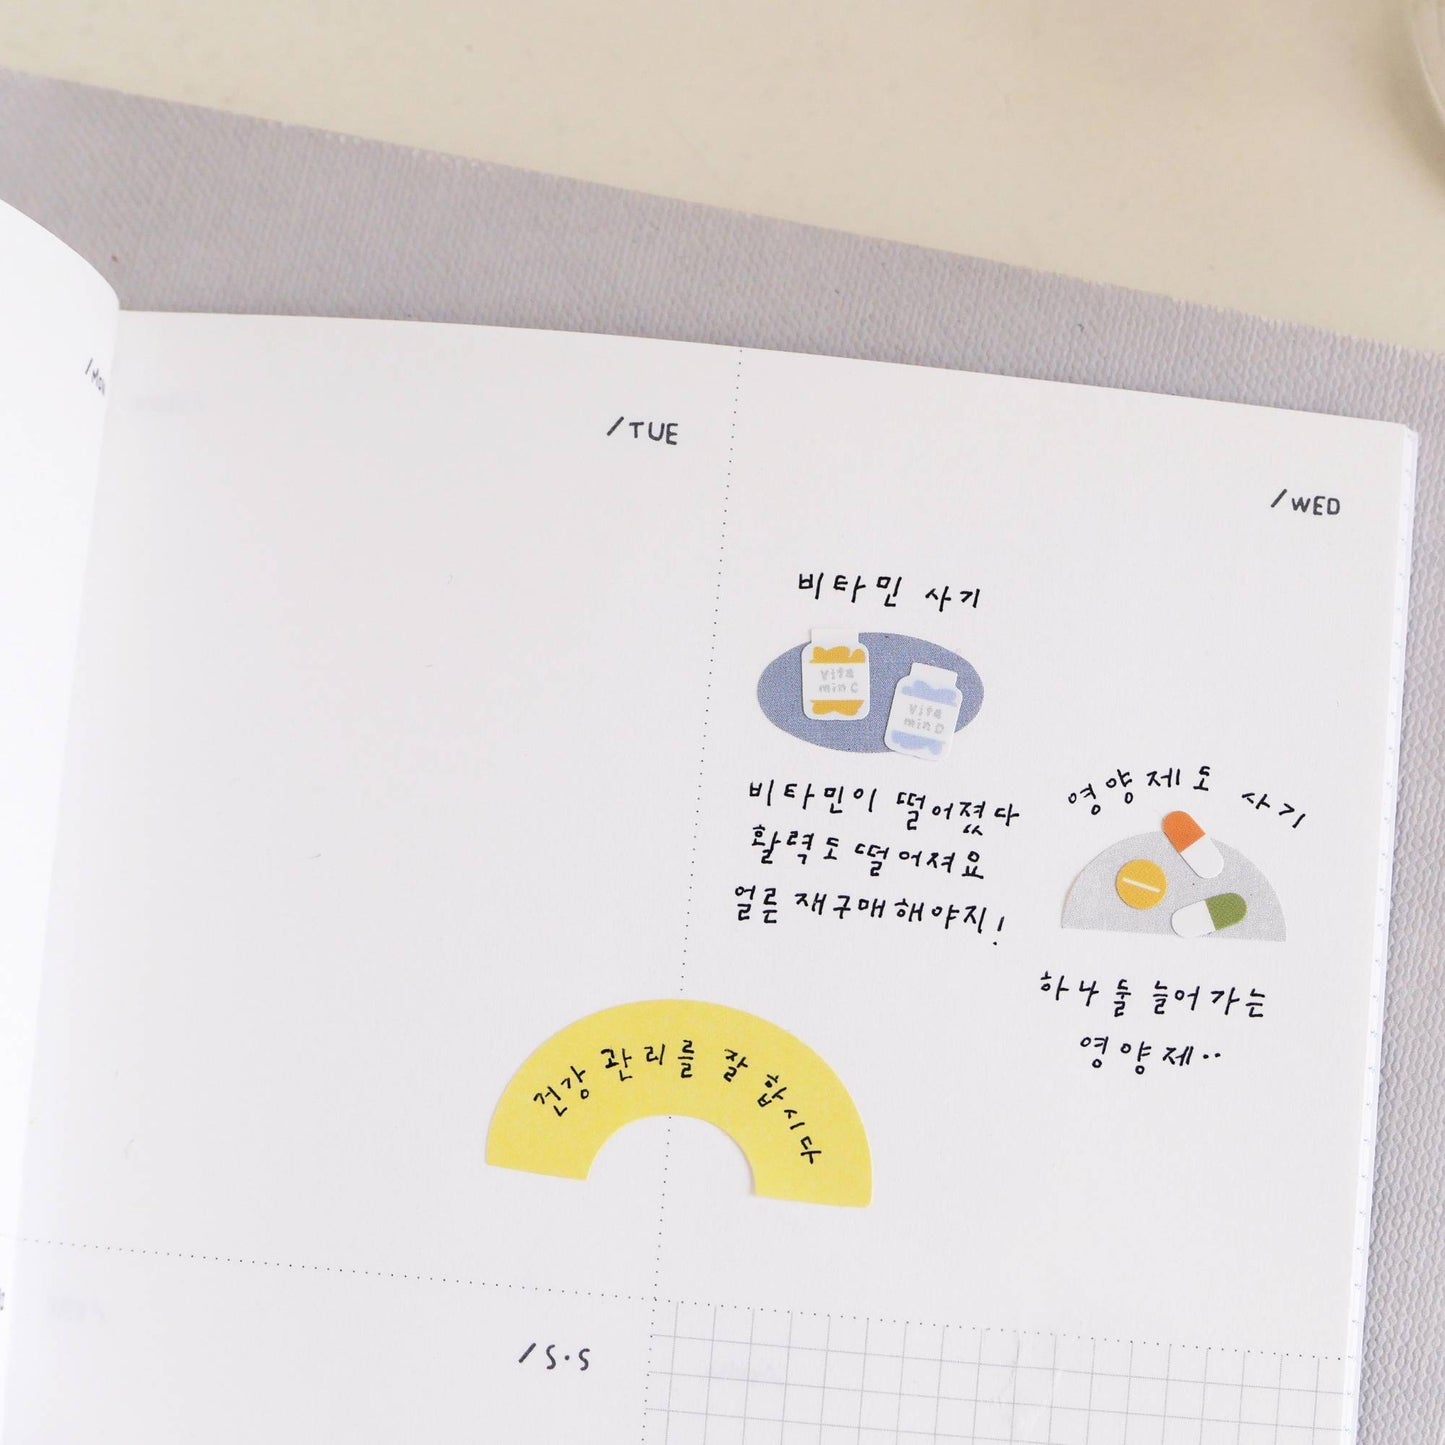 /MON
/TUE
/WED
비타민 사기
Vita
min C
Vita
min D
비타민이 떨어졌다
활력도 떨어져요
얼른 재구매해야지!
영양제도 사기
하나 둘 늘어가는
영양제..
건강 관리를 잘 합시다
/S.S